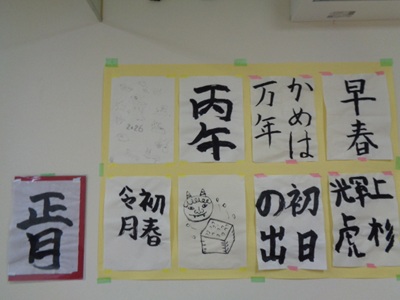 早春
かめは
万年
丙午
2026
上杉
輝虎
初日
の出
初春
令月
正月